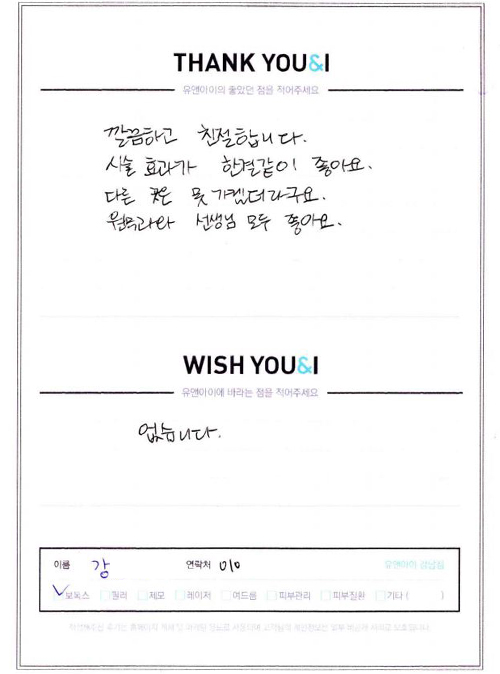 THANK YOU&I
유앤아이의 좋았던 점을 적어주세요
깔끔하고 친절합니다.
시술 효과가 한결같이 좋아요.
다른 곳은 못가겠더라구요.
선생님 모두 좋아요.
WISH YOU&I
유앤아이에 바라는 점을 적어주세요
없습니다.
이름 강 연락처 010 유앤아이 강남점
보톡스 필러 제모 레이저 여드름 피부관리 피부질환 기타 ( )